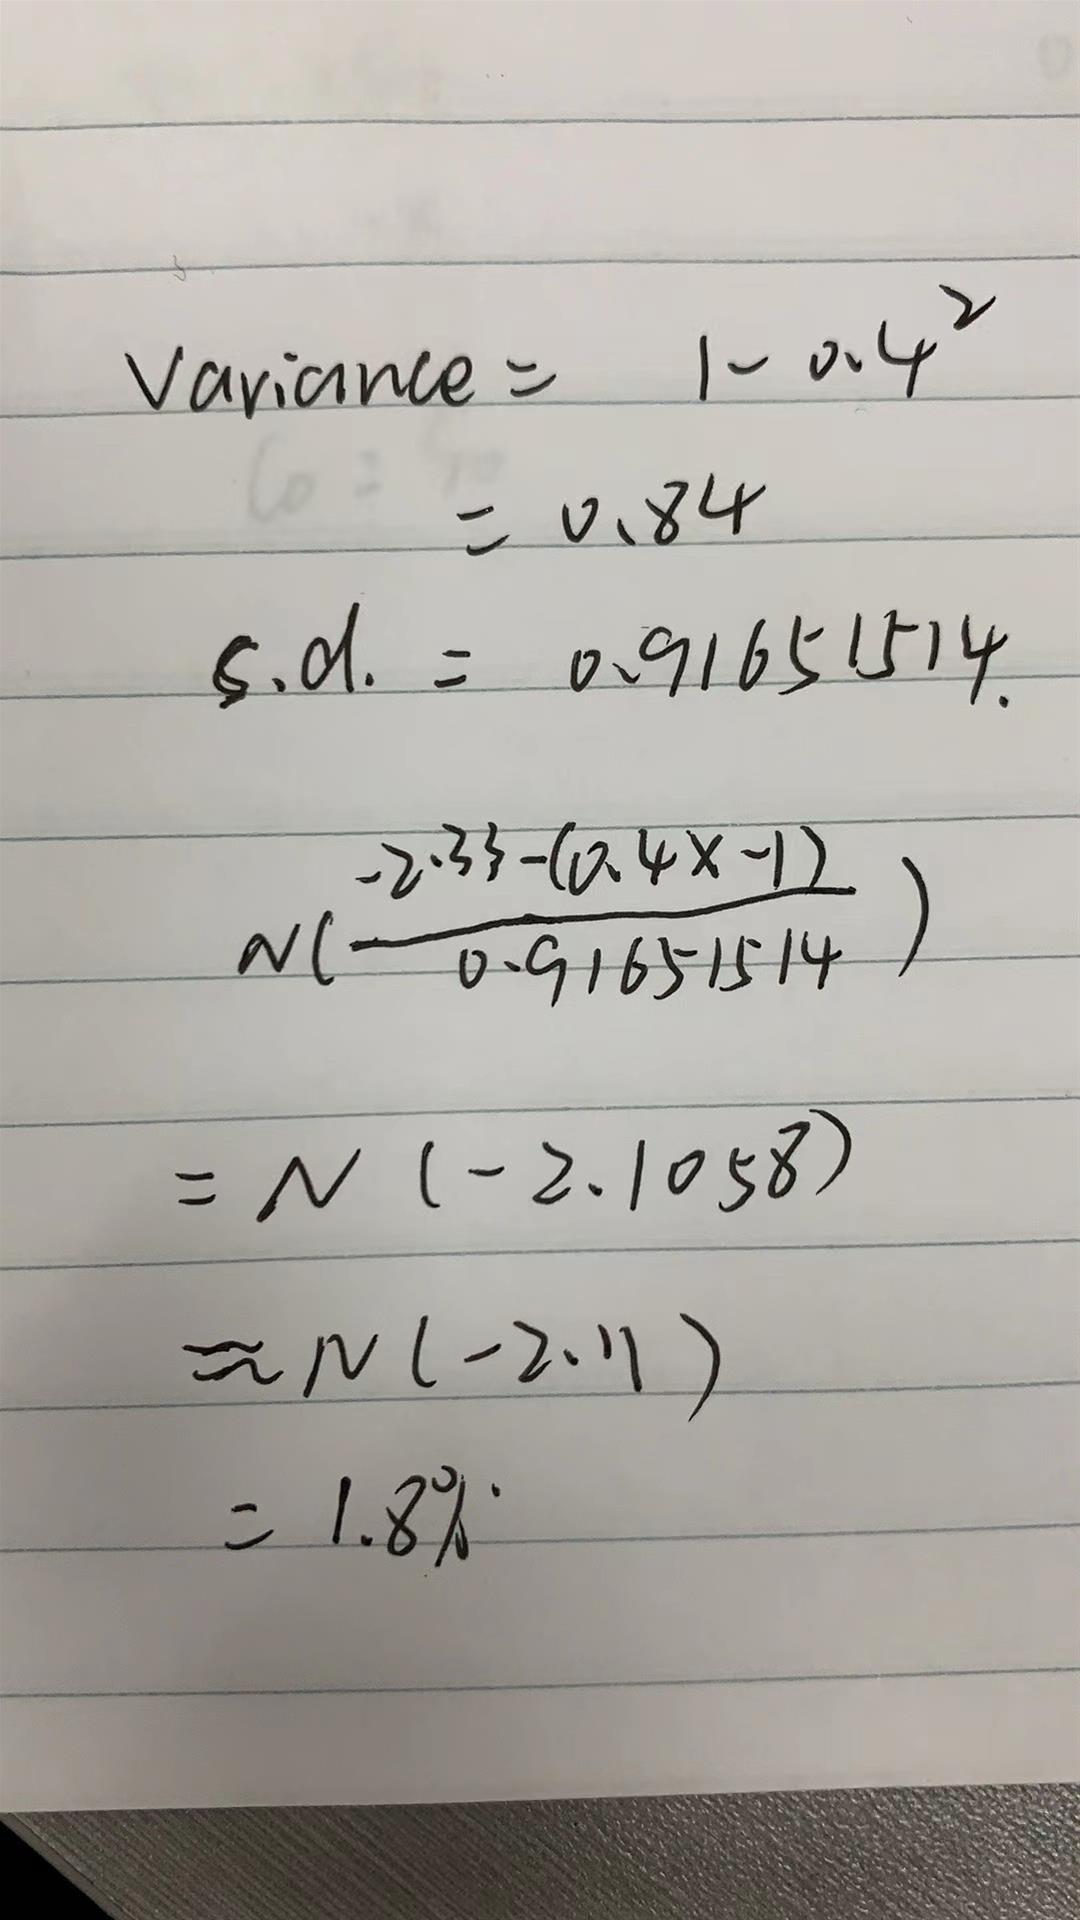 Variance = 1-0.4²
= 0.84
s.d. = 0.91651514.
N(-2.33-(0.4x-1)/0.91651514)
= N (-2.1058)
≈ N(-2.11)
= 1.8%